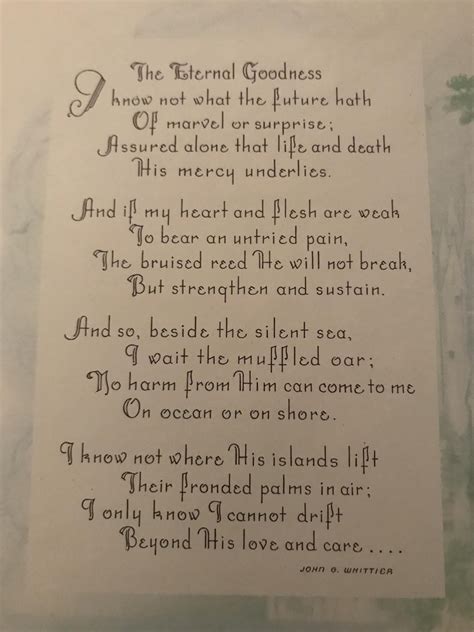 The Eternal Goodness
I know not what the future hath
Of marvel or surprise;
Assured alone that life and death
His mercy underlies.
And if my heart and flesh are weak
To bear an untried pain,
The bruised reed He will not break,
But strengthen and sustain.
And so, beside the silent sea,
I wait the muffled oar;
No harm from Him can come to me
On ocean or on shore.
I know not where His islands lift
Their fronded palms in air;
I only know I cannot drift
Beyond His love and care ....
JOHN G. WHITTIER